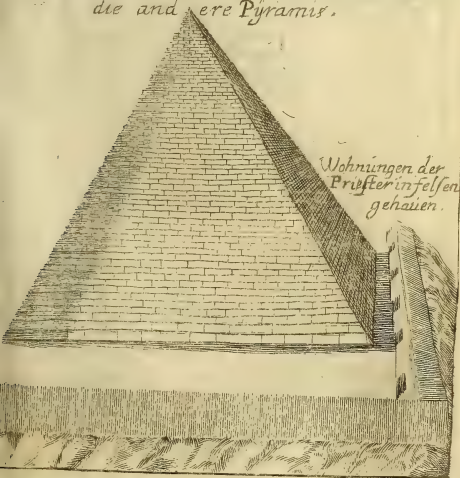 die and ere Pÿramis.
Wohnungen der
Priester in felsen
gehauen.